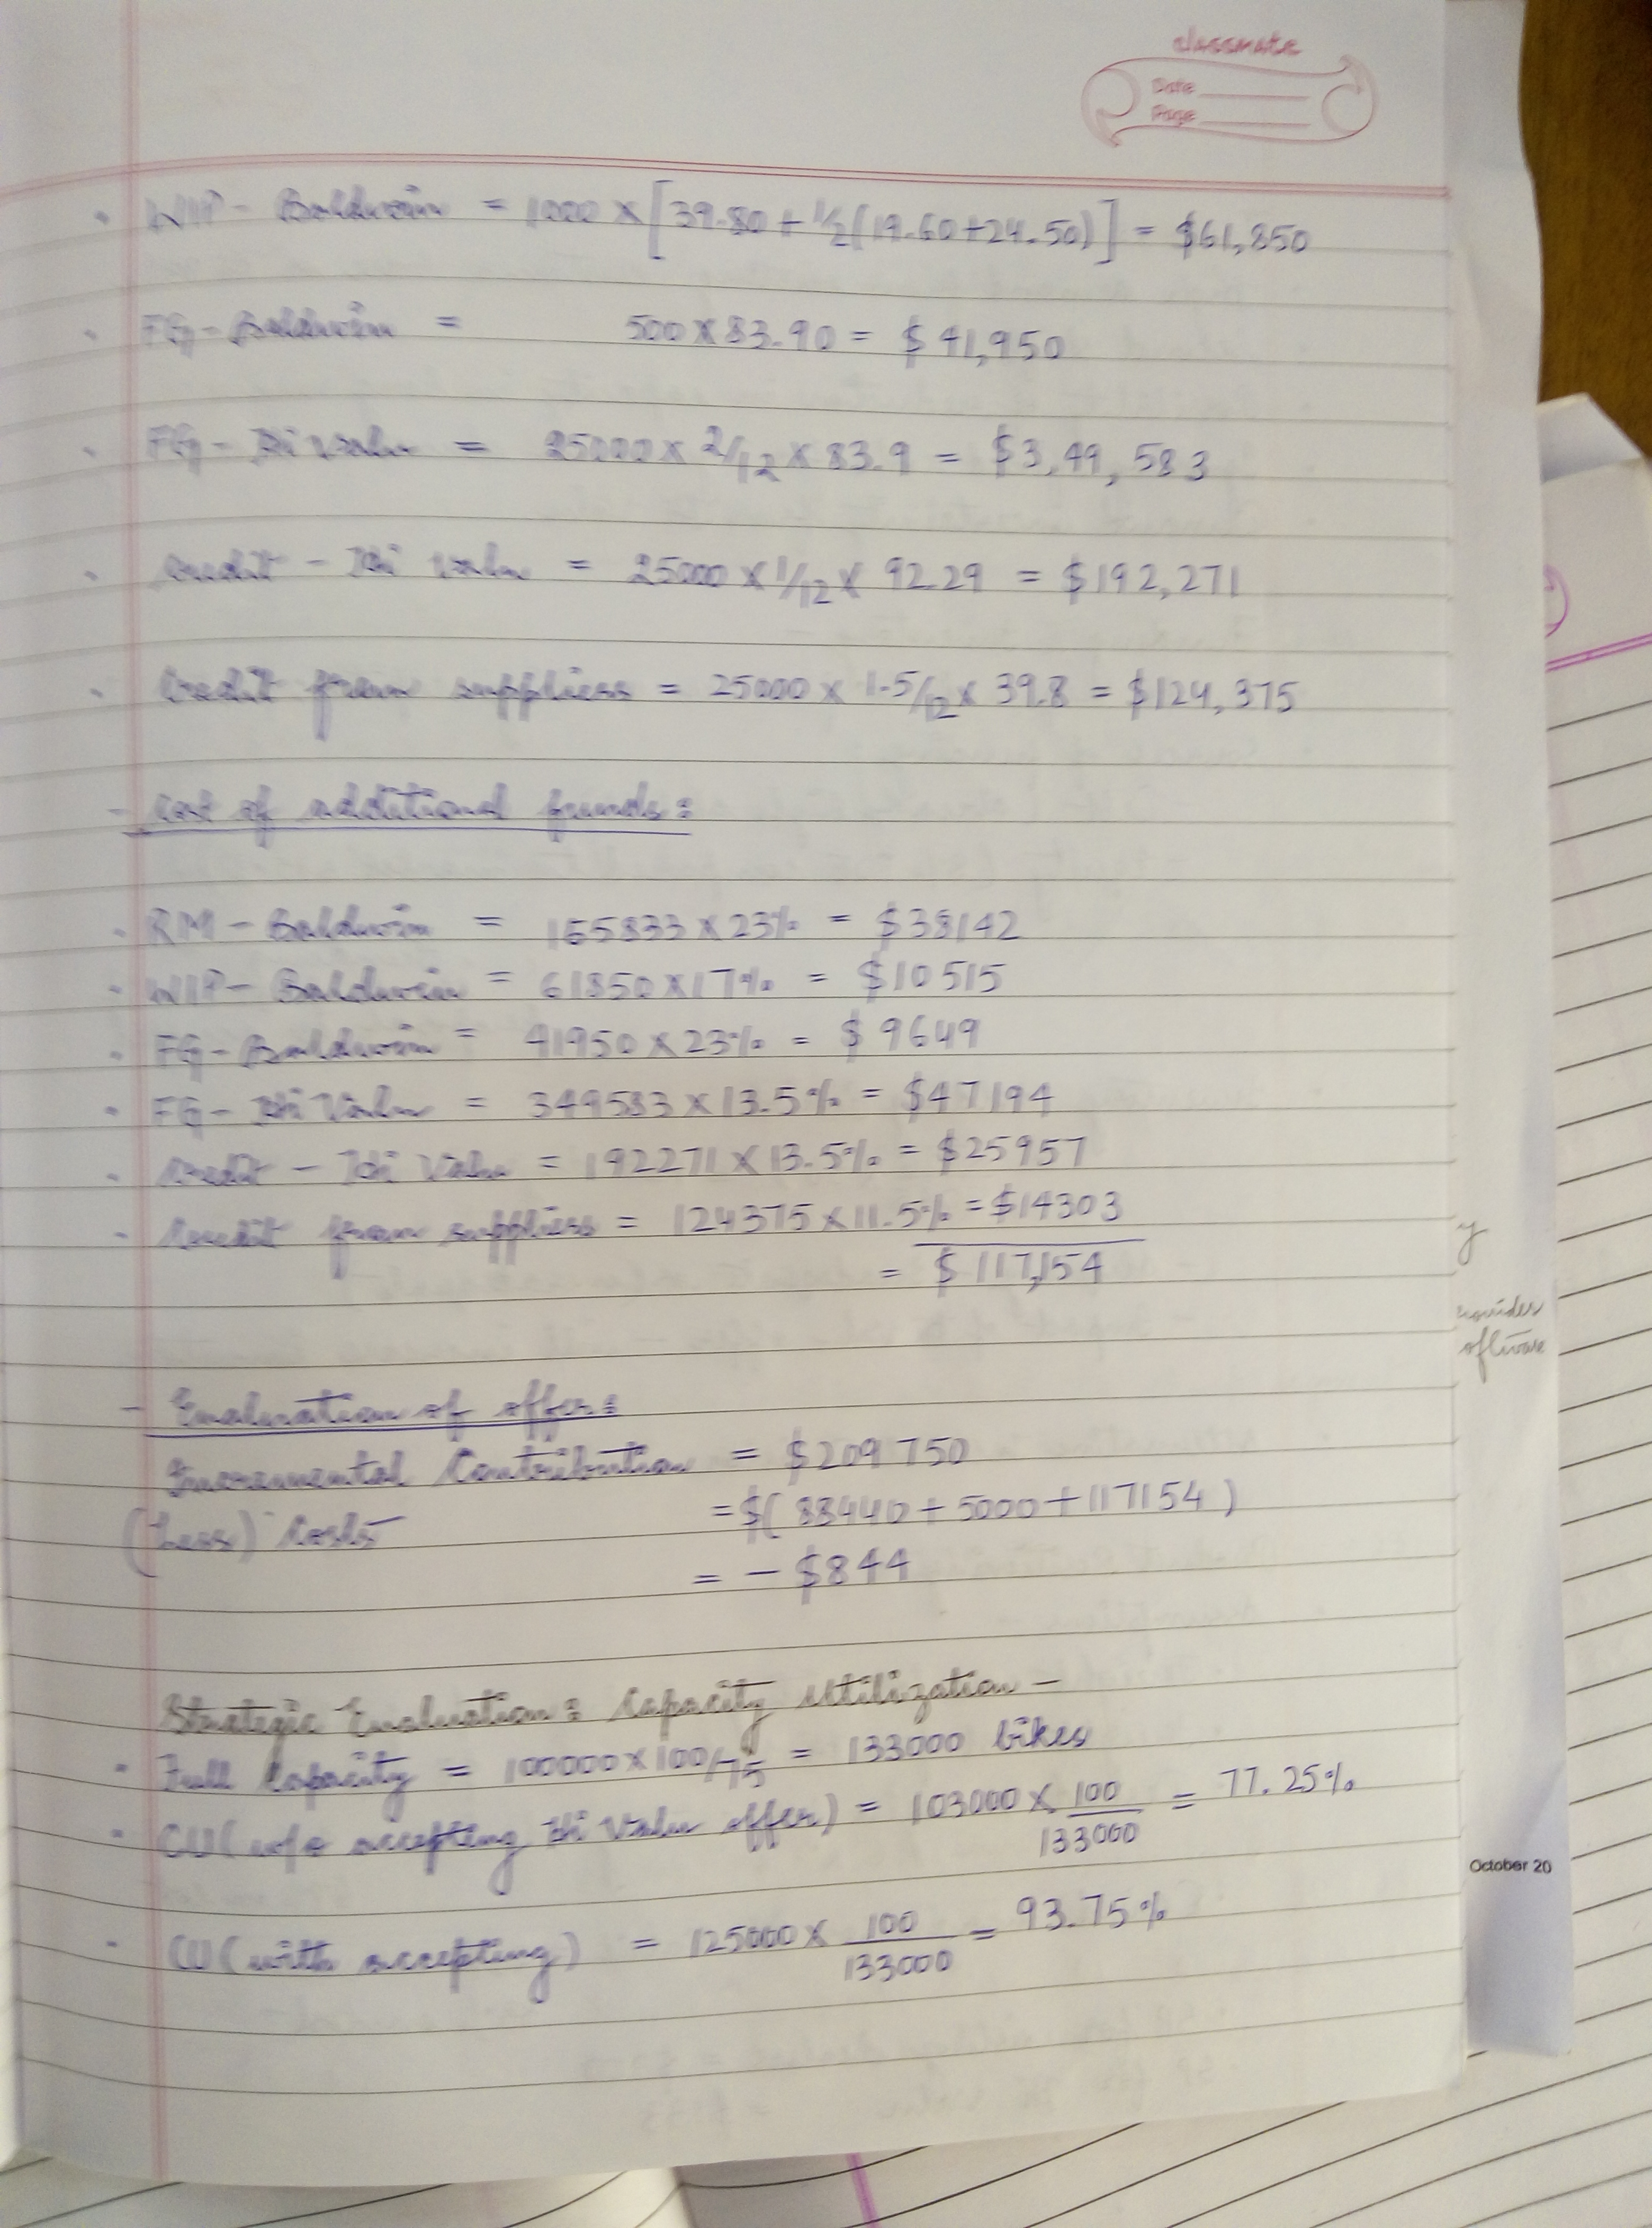 classmate
Date
Page
• WIP - Baldwin = 1000 × [39.80 + 1/2(19.60+24.50)] = $61,850
• FG - Baldwin = 500 × 83.90 = $41,950
• FG - Hi Valu = 25000 × 2/12 × 83.9 = $3,49,583
• Credit - Hi Valu = 25000 × 1/12 × 92.29 = $192,271
• Credit from suppliess = 25000 × 1.5/12 × 39.8 = $124,375
- Cost of additional funds:
• RM - Baldwin = 165833 × 23% = $38142
• WIP - Baldwin = 61850 × 17% = $10515
• FG - Baldwin = 41950 × 23% = $9649
• FG - Hi Valu = 349583 × 13.5% = $47194
• Credit - Hi Valu = 192271 × 13.5% = $25957
• Credit from suppliess = 124375 × 11.5% = $14303
= $117,154
- Evaluation of offer:
Incremental Contribution = $209750
(Less) Costs = $(88440 + 5000 + 117154)
= - $844
Strategic Evaluation: Capacity Utilization -
• Full Capacity = 100000 × 100/75 = 133000 bikes
• CU (w/o accepting Hi Valu offer) = 103000 × 100/133000 = 77.25%
• CU (with accepting) = 125000 × 100/133000 = 93.75%
y
oftware
October 20